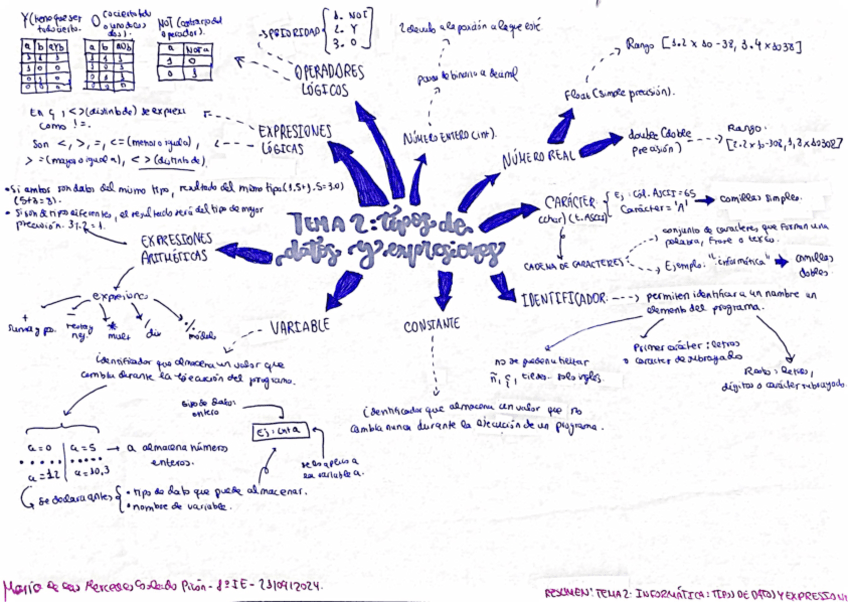 Y (tiene que ser todo cierto.
O (o cierto todo o uno de los dos).
NOT (contrario del operador).
a b aYb
1 1 1
1 0 0
0 1 0
0 0 0
a b aOb
1 1 1
a NOT a
1 0
0 1
→ PRIORIDAD
1. NOT
2. Y
3. O
OPERADORES LÓGICOS
2 elevado a la posición a la que esté
para de binario a decimal
NÚMERO ENTERO (int).
Rango [1.2 x 10 - 38, 3.4 x 1038]
Float (simple precisión).
NÚMERO REAL
double (doble precisión)
Rango.
[2.2 x 10-308, 1,8 x 10308]
En ç , < > (distinto de) se expresa
como !=.
Son <, >, =, <= (menor o igual),
> = (mayor o igual a), < > (distinto de)
EXPRESIONES LÓGICAS
CARÁCTER (char) (t. Ascii)
Ej: Cód. ASCII = 65
Carácter = 'A'
comillas simples.
• Si ambos son datos del mismo tipo, resultado del mismo tipo
• Si son de tipo diferentes, el resultado será del tipo de mayor
precisión.
EXPRESIONES ARITMÉTICAS
TEMA 2: tipos de
datos y expresiones
CADENA DE CARACTERES
conjunto de caracteres que forman una
palabra, frase o texto.
• Ejemplo: "informática"
comillas dobles.
IDENTIFICADOR
permiten identificar a un nombre un
elemento del programa.
no se pueden utilizar
ñ, ç, tildes. solo inglés.
Primer carácter: letras
o carácter de subrayado
Resto: letras,
dígitos o carácter subrayado.
expresiones
+
-
*
/
%
mult
div
módulo
VARIABLE
identificador que almacena un valor que
cambia durante la ejecución del programa.
CONSTANTE
identificador que almacena un valor que no
cambia nunca durante la ejecución de un programa.
tipo de datos
entero
Ej: int a
se le aplica a
la variable a.
a = 0
a = 12
a = 5
a = 10,3
→ a almacena números
enteros.
se declara antes
• tipo de dato que puede almacenar.
• nombre de variable.
María de las Mercedes Pisón - 1º IE - 23/09/2024.
RESUMEN: TEMA 2: INFORMÁTICA: TIPOS DE DATOS Y EXPRESION